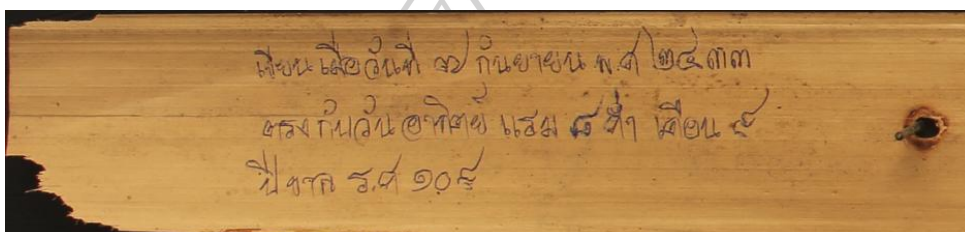 เขียนเมื่อวันที่ ๗ กันยายน พ.ศ ๒๔๓๓
ตรงกับวันอาทิตย์ แรม ๘ ค่ำ เดือน ๙
ปีขาล ร.ศ ๑๐๙